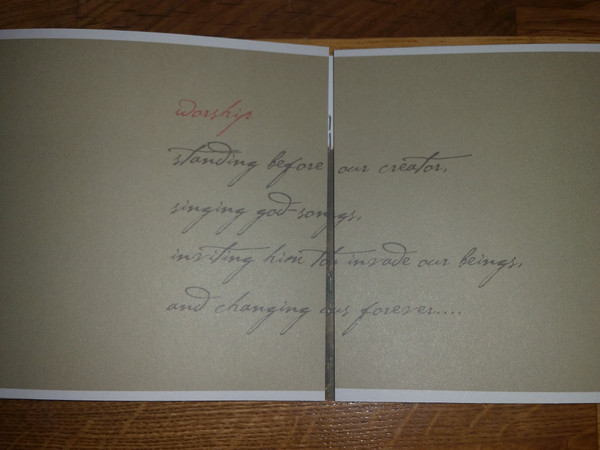 worship
standing before our creator,
singing god-songs,
inviting him to invade our beings,
and changing us forever....